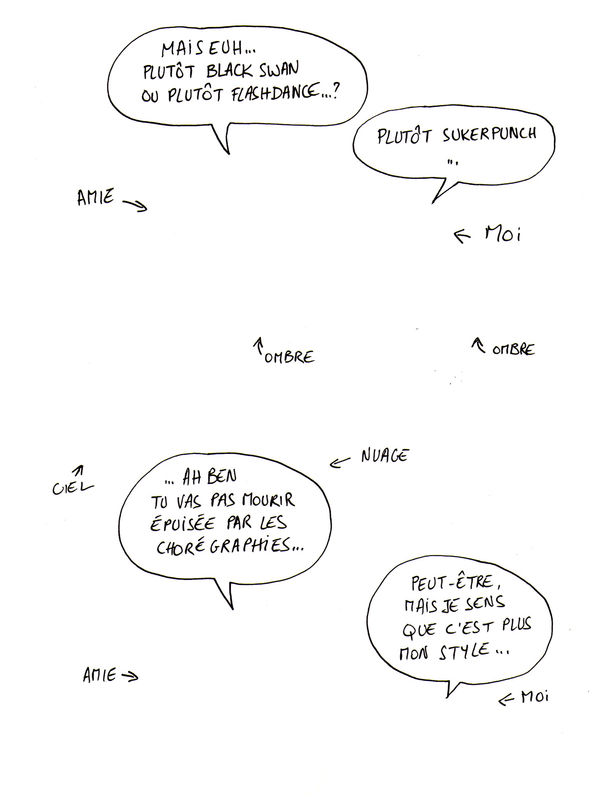 MAIS EUH...
PLUTÔT BLACK SWAN
OU PLUTÔT FLASHDANCE...?
PLUTÔT SUKERPUNCH
...
AMIE
MOI
OMBRE
OMBRE
CIEL
NUAGE
... AH BEN
TU VAS PAS MOURIR
ÉPUISÉE PAR LES
CHORÉGRAPHIES...
PEUT-ÊTRE,
MAIS JE SENS
QUE C'EST PLUS
MON STYLE...
AMIE
MOI